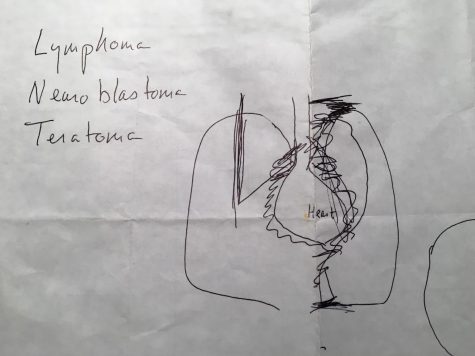 Lymphoma
Neuroblastoma
Teratoma
Heart